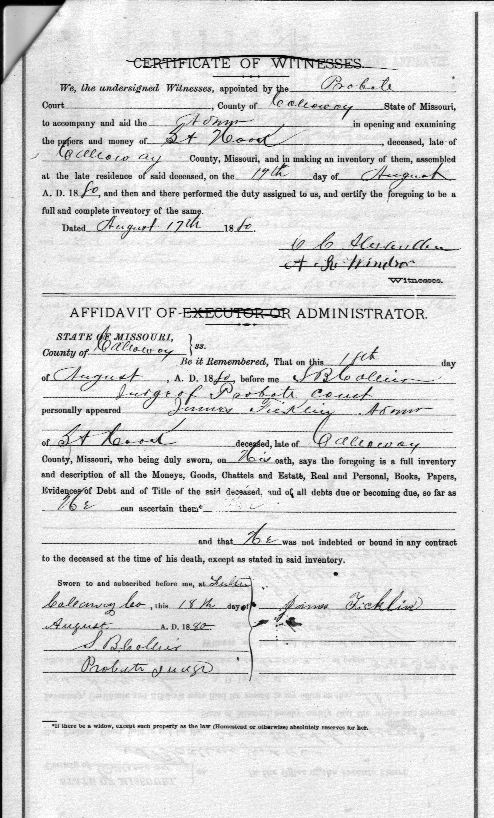 CERTIFICATE OF WITNESSES.
We, the undersigned Witnesses, appointed by the Probate
Court , County of Calloway State of Missouri,
to accompany and aid the Admr in opening and examining
the papers and money of , deceased, late of
Calloway County, Missouri, and in making an inventory of them, assembled
at the late residence of said deceased, on the 17th day of August
A. D. 1880, and then and there performed the duty assigned to us, and certify the foregoing to be a
full and complete inventory of the same.
Dated August 17th 1880.
Windsor
Witnesses.
AFFIDAVIT OF EXECUTOR OR ADMINISTRATOR.
STATE OF MISSOURI,
County of Calloway } ss.
Be it Remembered, That on this 18th day
of August , A. D. 1880, before me S B Collier
Judge of Probate Court
personally appeared James Ficklin Admr
of deceased, late of Calloway
County, Missouri, who being duly sworn, on His oath, says the foregoing is a full inventory
and description of all the Moneys, Goods, Chattels and Estate, Real and Personal, Books, Papers,
Evidences of Debt and of Title of the said deceased, and of all debts due or becoming due, so far as
He can ascertain them*
and that He was not indebted or bound in any contract
to the deceased at the time of his death, except as stated in said inventory.
Sworn to and subscribed before me, at Fulton
Calloway Co, this 18th day of James Ficklin
August A. D. 1880
S B Collier
Probate Judge
*If there be a widow, except such property as the law (Homestead or otherwise) absolutely reserves for her.